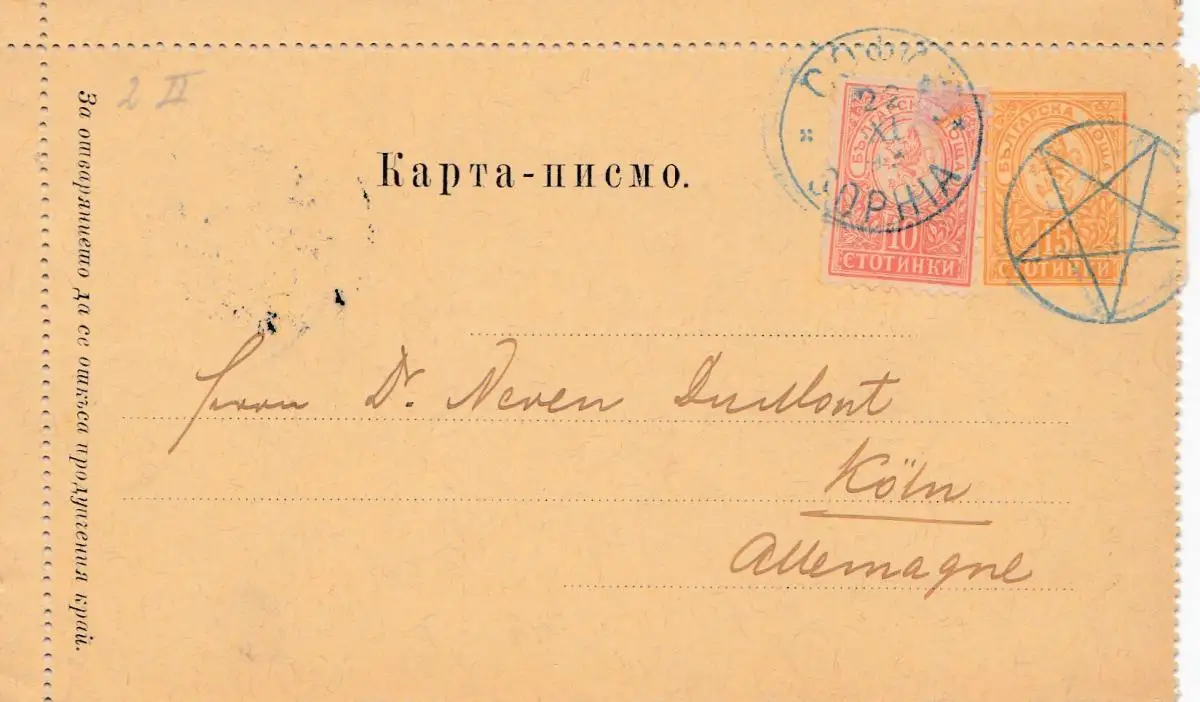 2 II
Карта-писмо.
СОФИЯ
22
XI
SOPHIA
БЪЛГАРСКА ПОЩА
10
СТОТИНКИ
БЪЛГАРСКА ПОЩА
15
СТОТИНКИ
Herrn Dr. Neven DuMont
Köln
Allemagne
За отварянието да се откѫса продупчения край.